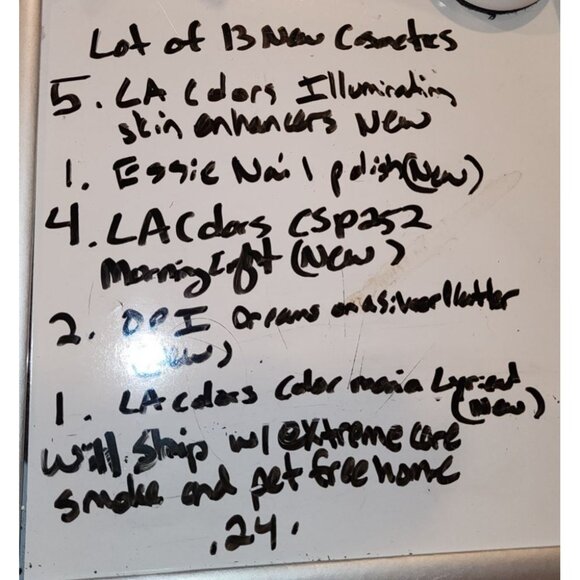 Lot of 13 New Cosmetics
5. LA Colors Illuminating
skin enhancers New
1. Essie Nail polish (New)
4. LA Colors CSP252
Morning Light (New)
2. OPI Dreams on a silver platter
(New)
1. LA colors Color mania Lyrical
(New)
Will Ship w/ extreme care
smoke and pet free home
.24.